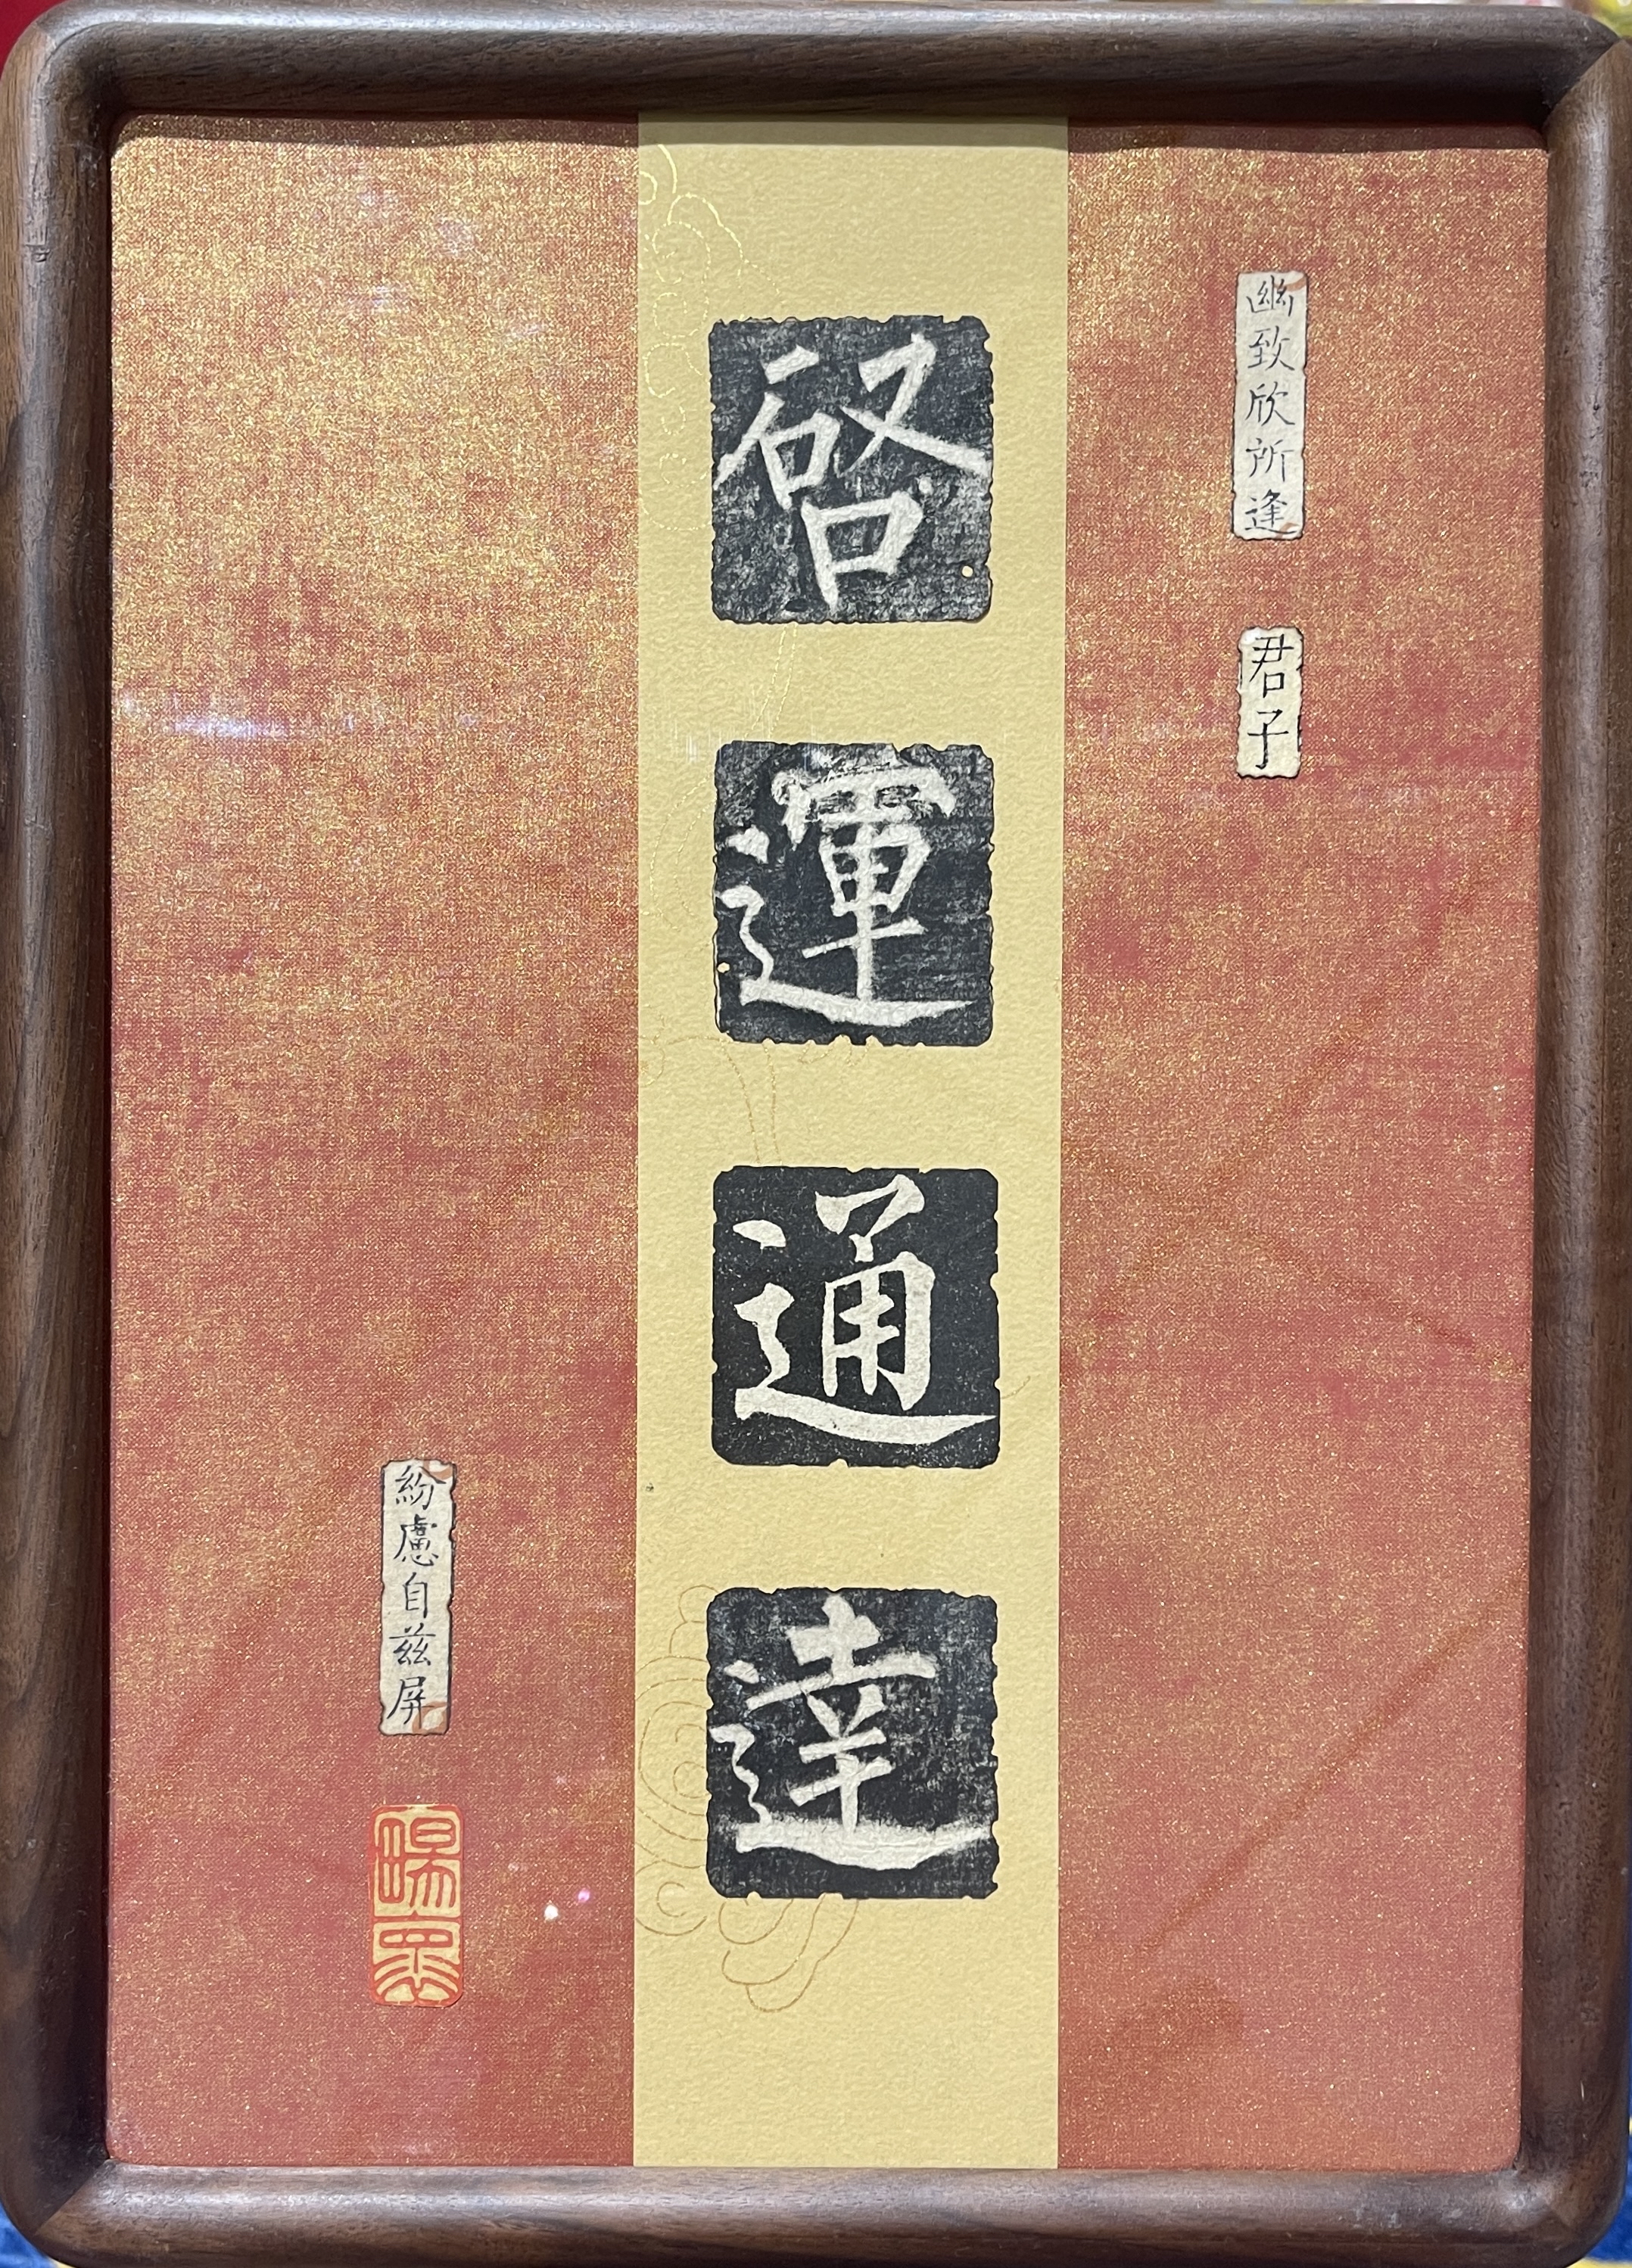 幽致欣所逢
君子
啓運通達
紛慮自兹屏